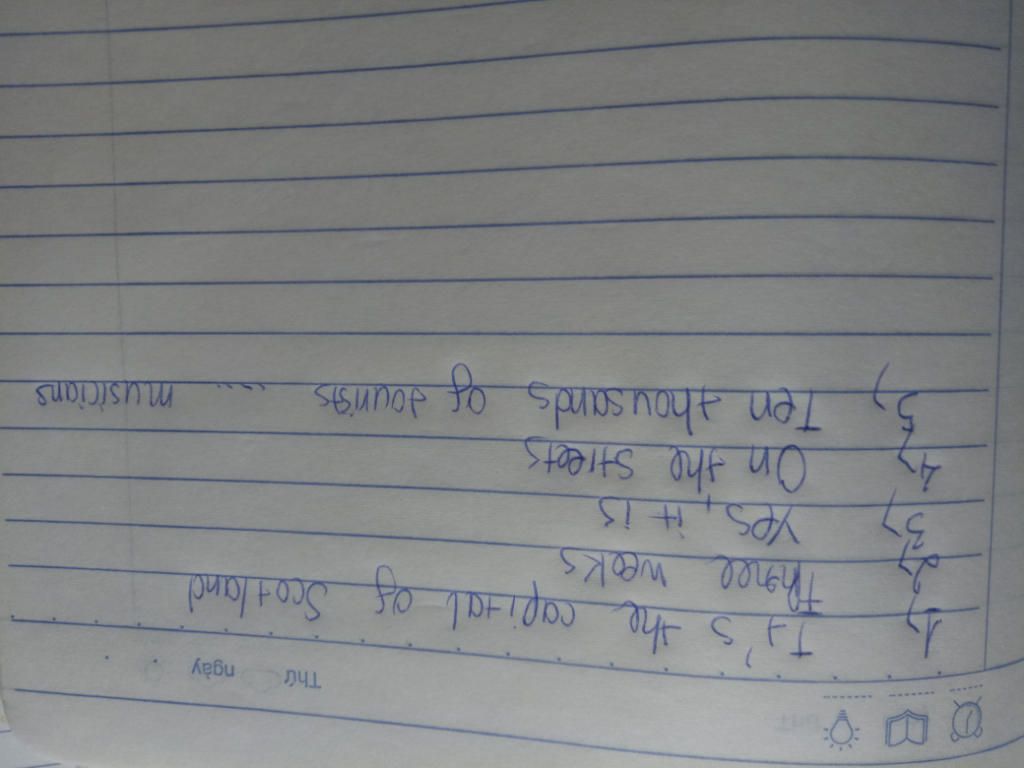 Thứ ngày
1, It's the capital of Scotland
2, Three weeks
3, Yes, it is
4, On the streets
5, Ten thousands of tourists .... musicians